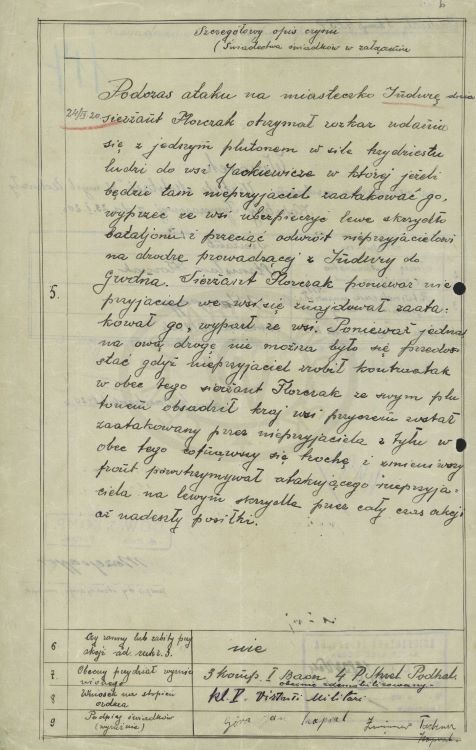 Szczegółowy opis czynu
(Świadectwa świadków w załączeniu
Podczas ataku na miasteczko Indurę dnia
24/IX 20. sierżant Florczak otrzymał rozkaz udania
się z jednym plutonem w sile trzydziestu
ludzi do wsi Jaskiewicze w której jeżeli
będzie tam nieprzyjaciel zaatakować go,
wyprzeć ze wsi ubezpieczyć lewe skrzydło
bataljonu i przeciąć odwrót nieprzyjacielowi
na drodze prowadzącej z Indury do
Grodna. Sierżant Florczak ponieważ nie
5. przyjaciel we wsi się znajdował zaata-
kował go, wyparł ze wsi. Ponieważ jednak
na ową drogę nie można było się przedos-
tać gdyż nieprzyjaciel zrobił kontratak
w obec tego sierżant Florczak ze swym plu
tonem obsadził kraj wsi przyczem został
zaatakowany przez nieprzyjaciela z tyłu w
obec tego cofnąwszy się trochę i zmieniwszy
front powstrzymywał atakującego nieprzyja-
ciela na lewym skrzydle przez cały czas akcji
aż nadeszły posiłki.
6 Czy ranny lub zabity przy
akcji ad rubr. 5. nie
7. Obecny przydział wymie-
nionego 3 komp. I Baon 4 P. Strzel. Podhal.
obecnie zdemobilizowany
8 Wniosek na stopień
orderu kl. V. Virtuti Militari
9 Podpisy świadków
(wyraźnie) Góra Jan kapral